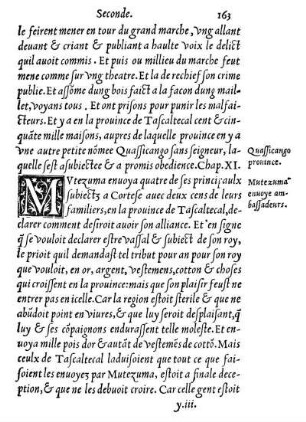 Seconde. 163
le feirent mener en tour du grand marche, vng allant
deuant & criant & publiant a haulte voix le delict
quil auoit commis. Et puis ou millieu du marche feut
mene comme sur vng theatre. Et la de rechief son crime
publie. Et assõme dung bois faict a la facon dung mail-
let, voyans tous. Et ont prisons pour punir les malfai-
cteurs. Et y a en la prouince de Tascaltecal cent & cin-
quãte mille maisons, aupres de laquelle prouince en y a
vne autre petite nõmee Quassicango sans seigneur, la-
quelle sest asubiectee & a promis obedience. Chap. XI.
Quassicango
prouince.
MVtezuma enuoya quatre de ses principaulx
subiects a Cortese auec deux cens de leurs
familiers, en la prouince de Tascaltecal, de-
clarer comment desiroit auoir son alliance. Et en signe
q̃ se vouloit declarer estre vassal & subiect de son roy,
le prioit quil demandast tel tribut pour an pour son roy
que vouloit, en or, argent, vestemens, cotton & choses
qui croissent en la prouince: mais que son plaisir feust ne
entrer pas en icelle. Car la region estoit sterile & que ne
abũdoit point en viures, & que luy seroit desplaisant, q̃
luy & ses cõpaignons endurassent telle moleste. Et en-
uoya mille pois dor & autãt de vestemẽs de cottõ. Mais
ceulx de Tascaltecal laduisoient que tout ce que fai-
soient les enuoyez par Mutezuma, estoit a finale dece-
ption, & que ne les debuoit croire. Car celle gent estoit
Mutezuma
enuoye am-
bassadeurs.
y.iii.